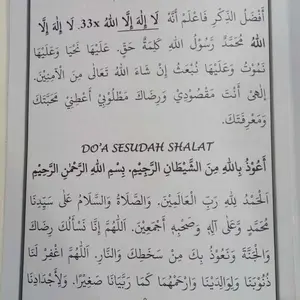 أَفْضَلُ الذِّكْرِ فَاعْلَمْ أَنَّهُ لَا إِلٰهَ إِلَّا اللهُ 33x. لَا إِلٰهَ إِلَّا
اللهُ مُحَمَّدٌ رَسُولُ اللهِ كَلِمَةُ حَقٍّ. عَلَيْهَا نَحْيَا وَعَلَيْهَا
نَمُوْتُ وَعَلَيْهَا نُبْعَثُ إِنْ شَاءَ اللهُ تَعَالَى مِنَ الْآمِنِيْنَ.
إِلٰهِيْ أَنْتَ مَقْصُوْدِيْ وَرِضَاكَ مَطْلُوْبِيْ أَعْطِنِيْ مَحَبَّتَكَ
وَمَعْرِفَتَكَ.
DO'A SESUDAH SHALAT
أَعُوْذُ بِاللهِ مِنَ الشَّيْطَانِ الرَّجِيْمِ. بِسْمِ اللهِ الرَّحْمٰنِ الرَّحِيْمِ
اَلْحَمْدُ لِلّٰهِ رَبِّ الْعَالَمِيْنَ. وَالصَّلَاةُ وَالسَّلَامُ عَلَى سَيِّدِنَا
مُحَمَّدٍ وَعَلَى آلِهِ وَصَحْبِهِ أَجْمَعِيْنَ. اَللّٰهُمَّ إِنَّا نَسْأَلُكَ رِضَاكَ
وَالْجَنَّةَ وَنَعُوْذُ بِكَ مِنْ سَخَطِكَ وَالنَّارِ. اَللّٰهُمَّ اغْفِرْ لَنَا
ذُنُوْبَنَا وَلِوَالِدَيْنَا وَارْحَمْهُمَا كَمَا رَبَّيَانَا صَغِيْرًا. وَلِأَجْدَادِنَا